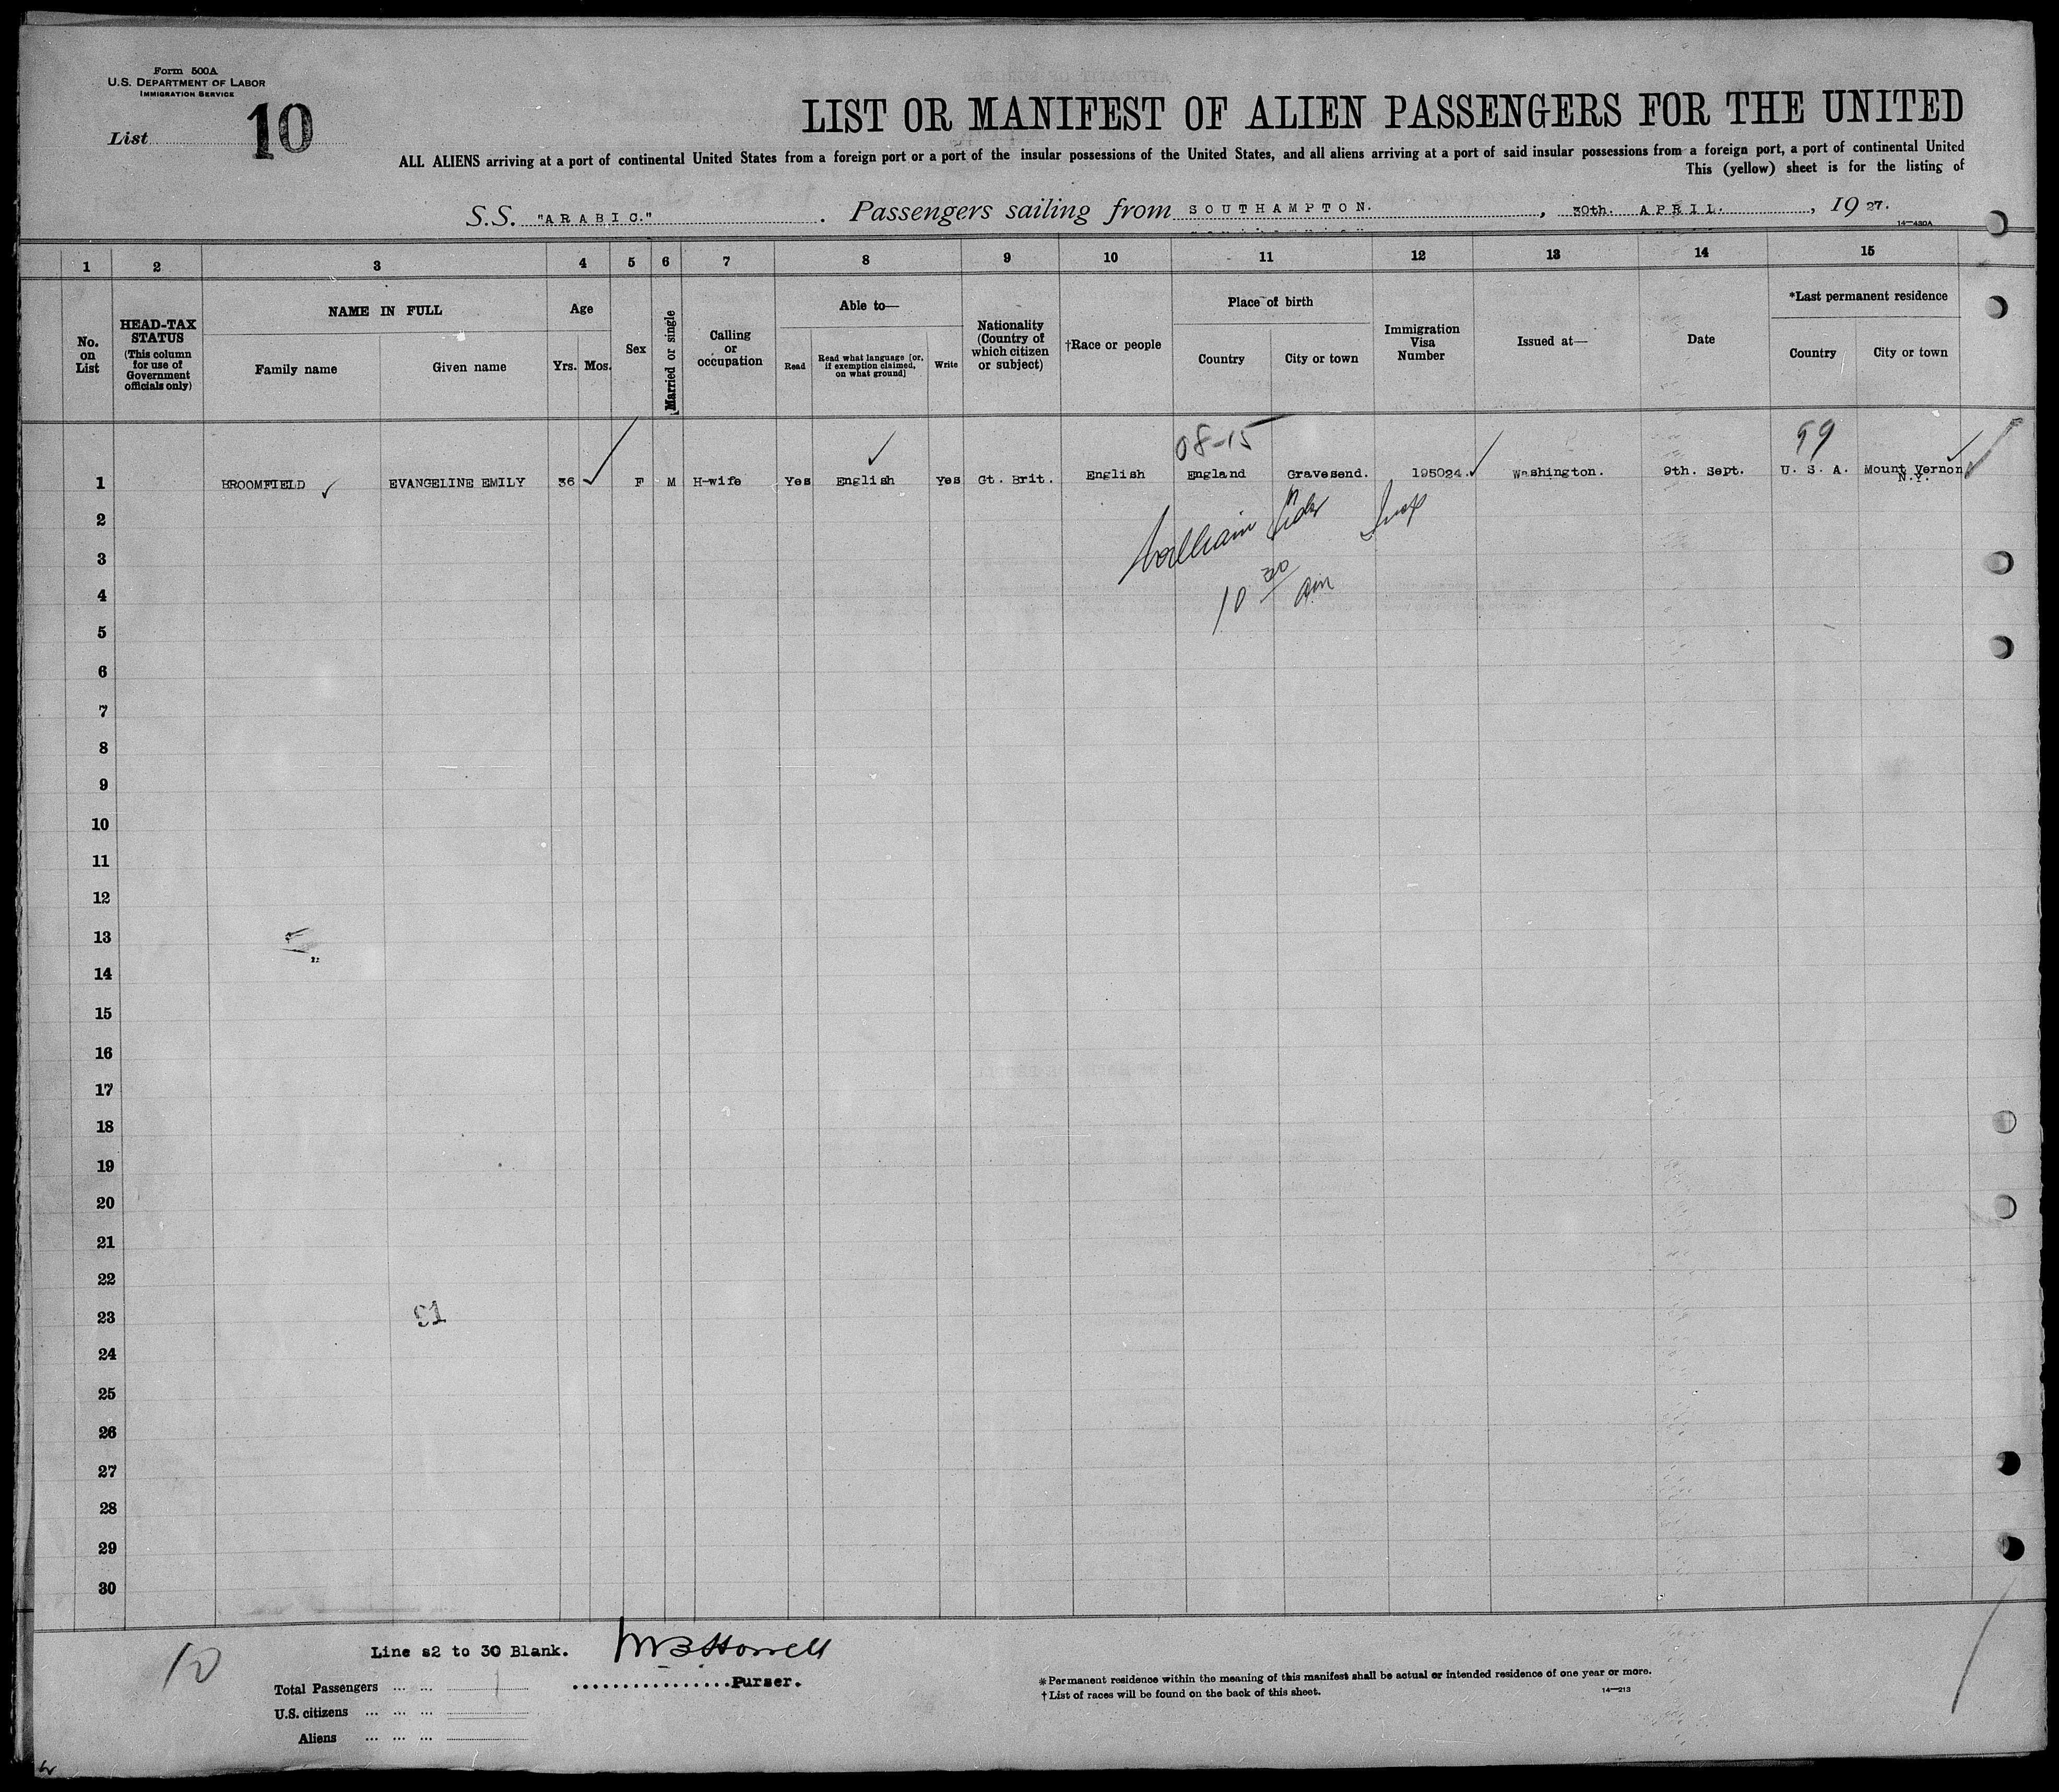 Form 500A
U.S. DEPARTMENT OF LABOR
IMMIGRATION SERVICE
List 10
LIST OR MANIFEST OF ALIEN PASSENGERS FOR THE UNITED
ALL ALIENS arriving at a port of continental United States from a foreign port or a port of the insular possessions of the United States, and all aliens arriving at a port of said insular possessions from a foreign port, a port of continental United
This (yellow) sheet is for the listing of
S.S. "ARABIC." . Passengers sailing from SOUTHAMPTON. , 30th. APRIL. , 19 27.
14—430A
1 2 3 4 5 6 7 8 9 10 11 12 13 14 15
No. on List
HEAD-TAX STATUS (This column for use of Government officials only)
NAME IN FULL
Family name Given name
Age
Yrs. Mos.
Sex
Married or single
Calling or occupation
Able to—
Read Read what language [or, if exemption claimed, on what ground] Write
Nationality (Country of which citizen or subject)
†Race or people
Place of birth
Country City or town
Immigration Visa Number
Issued at—
Date
*Last permanent residence
Country City or town
08-15 99
1 BROOMFIELD EVANGELINE EMILY 36 F M H-wife Yes English Yes Gt. Brit. English England Gravesend. 195024. Washington. 9th. Sept. U. S. A. Mount Vernon
N.Y.
2
William
3
10 30 am
4
5
6
7
8
9
10
11
12
13
14
15
16
17
18
19
20
21
22
23
24
25
26
27
28
29
30
10
Line s2 to 30 Blank.
Purser.
Total Passengers ... ... 1
U.S. citizens ... ... ...
Aliens ... ... ...
*Permanent residence within the meaning of this manifest shall be actual or intended residence of one year or more.
†List of races will be found on the back of this sheet.
14—213